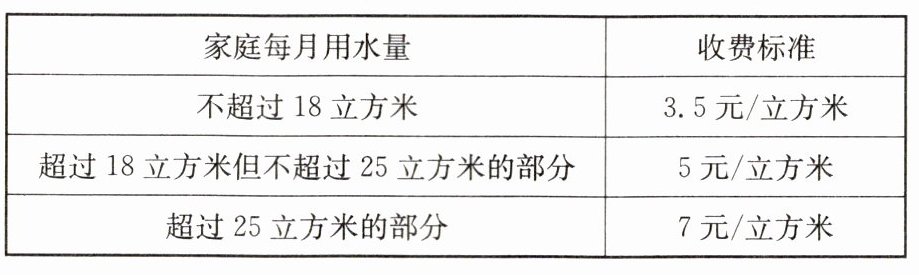 家庭每月用水量 收费标准
不超过 18 立方米 3.5 元/立方米
超过 18 立方米但不超过 25 立方米的部分 5 元/立方米
超过 25 立方米的部分 7 元/立方米